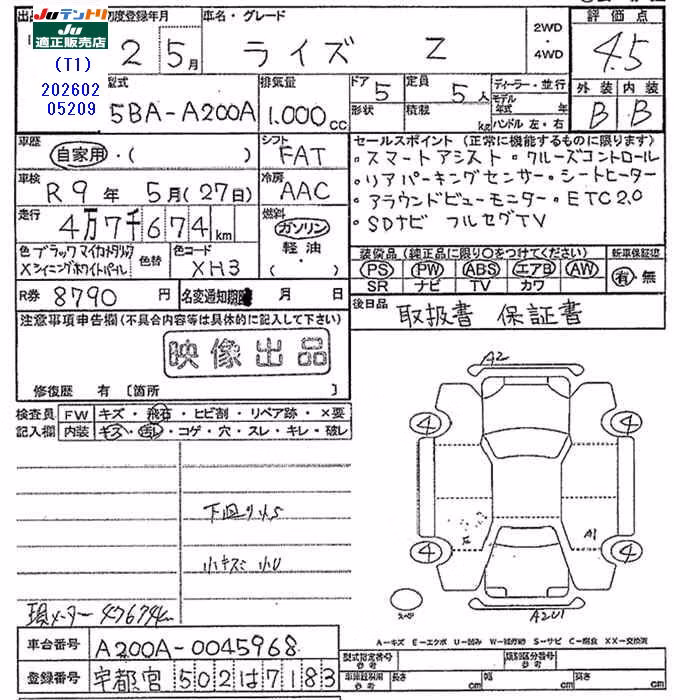 Juテントリ
JU
適正販売店
(T1)
202602
05209
初度登録年月 車名・グレード 2WD・4WD 評価点
2 5月 ライズ Z 4.5
型式 排気量 ドア 定員 ディーラー・並行 外装 内装
5BA-A200A 1.000cc 5 5人 モデル年式 年 B B
形状 積載 kg ハンドル 左・右
車歴 シフト セールスポイント (正常に機能するものに限ります)
自家用・( ) FAT ・スマートアシスト・クルーズコントロール
車検 冷房 ・リアパーキングセンサー・シートヒーター
R9年5月(27日) AAC ・アラウンドビューモニター・ETC2.0
走行 燃料 ・SDナビ フルセグTV
4万7千674km ガソリン
軽油・( )
色 ブラックマイカメタリック 色替 色コード
Xシャイニングホワイトパール XH3
装備品 (純正品に限り〇をつけてください) 新車保証書
PS PW ABS エアB AW 有・無
SR ナビ TV カワ
R券 8790円 名変通知期限 月 日
後日品 取扱書 保証書
注意事項申告欄(不具合内容等は具体的に記入して下さい)
映像出品
修復歴 有 〔箇所 〕
検査員 FW キズ・飛石・ヒビ割・リペア跡・×要
記入欄 内装 キズ・汚レ・コゲ・穴・スレ・キレ・破レ
A2
4 4
下回りサビ
A1
小キズミ 小U
4 4
スペア
A2U1
現メーター 47674km
A-キズ E-エクボ U-凹み W-補修跡 S-サビ C-腐食 XX-交換済
車台番号 A200A-0045968
型式指定番号 参考 類別区分番号 参考
登録番号 宇都宮502は7183
車庫証明用 参考 長さ cm 幅 cm 高さ cm